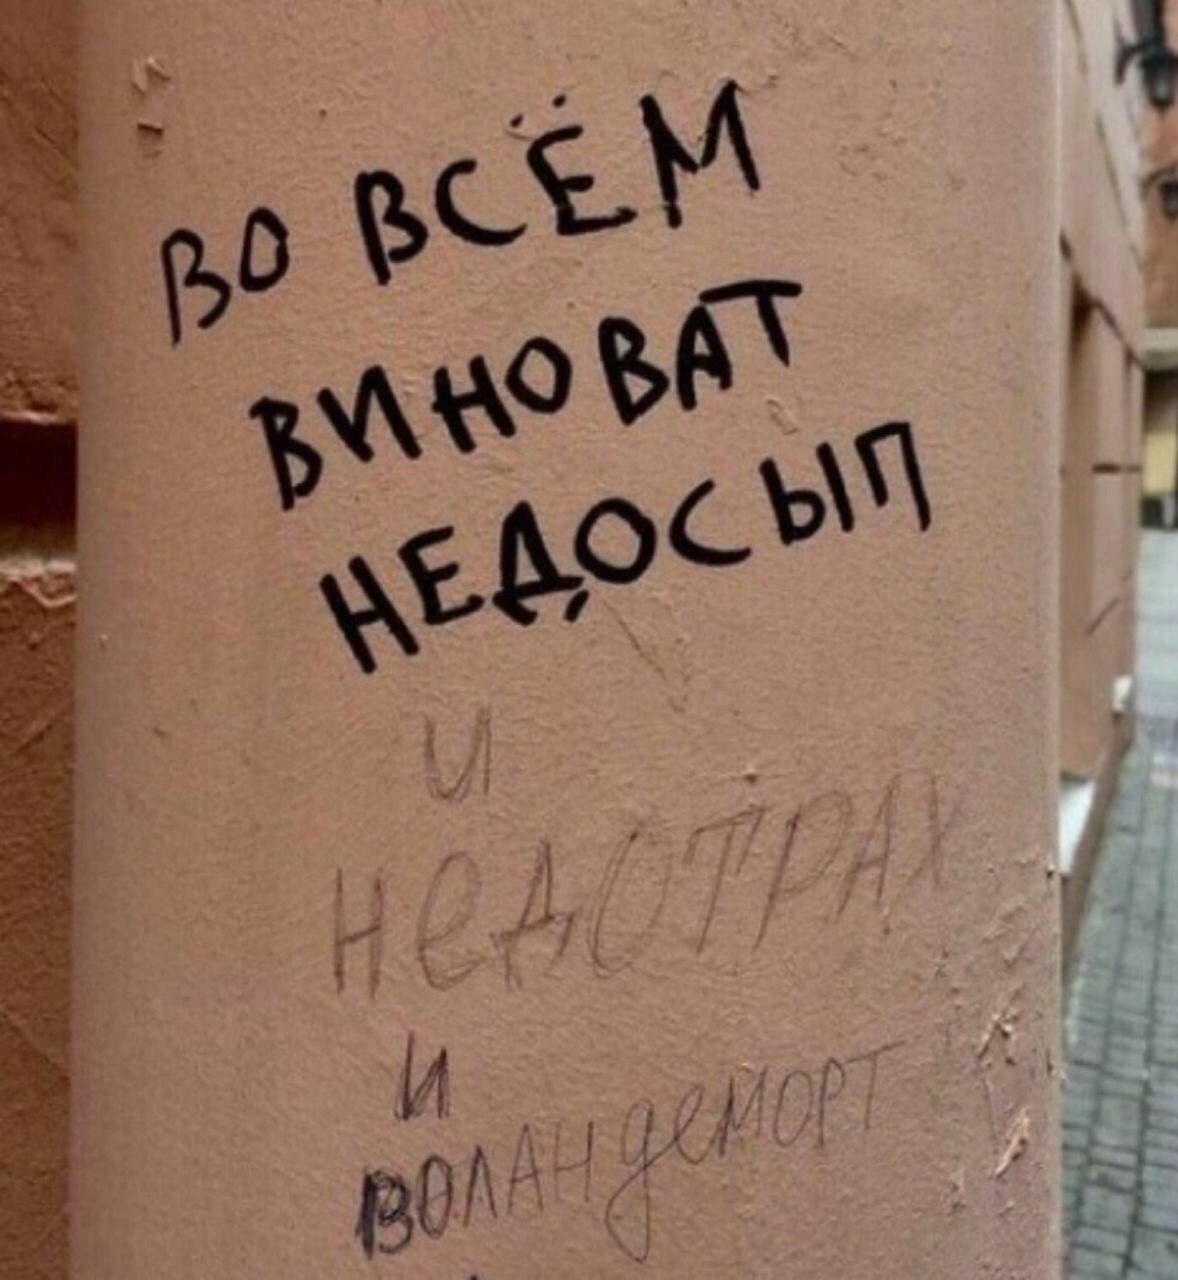 ВО ВСЁМ
ВИНОВАТ
НЕДОСЫП
И
НеДОТРАХ
И
ВОЛАНдеМОРТ